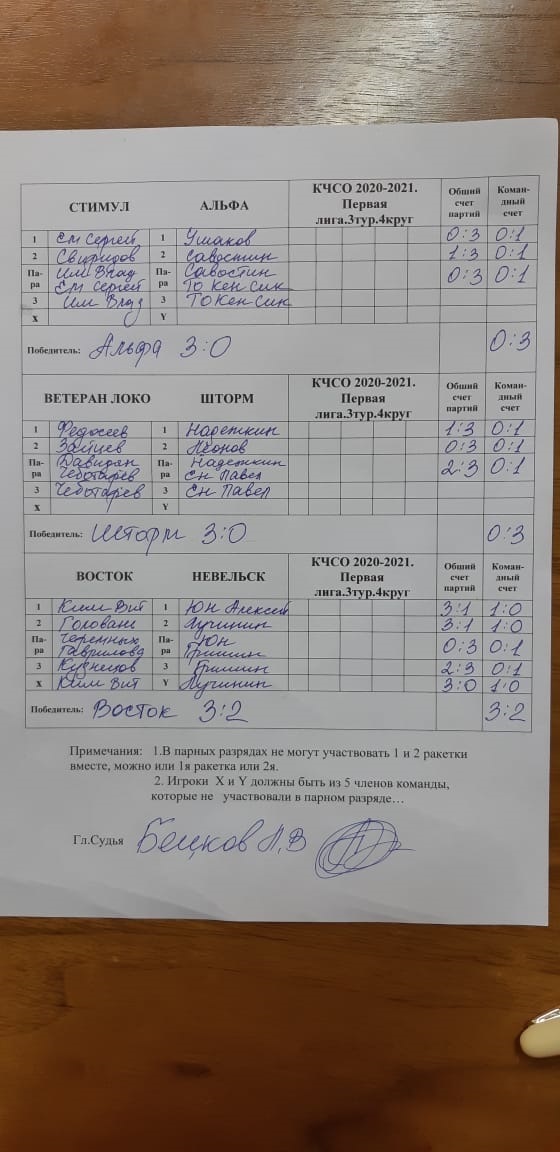 СТИМУЛ АЛЬФА КЧСО 2020-2021. Первая лига.3тур.4круг Общий счет партий Коман-дный счет
1 Ем Сергей 1 Ушаков 0:3 0:1
2 Свиридов 2 Савостин 1:3 0:1
Па-ра Им Влад Па-ра Савостин 0:3 0:1
Ем Сергей То Кен Сик
3 Им Влад 3 ТО Кен Сик
X Y
Победитель: Альфа 3:0 0:3
ВЕТЕРАН ЛОКО ШТОРМ КЧСО 2020-2021. Первая лига.3тур.4круг Общий счет партий Коман-дный счет
1 Федосеев 1 Надежкин 1:3 0:1
2 Зайцев 2 Леонов 0:3 0:1
Па-ра Давидян Па-ра Надежкин 2:3 0:1
Чеботарев Ен Павел
3 Чеботарев 3 Ен Павел
X Y
Победитель: Шторм 3:0 0:3
ВОСТОК НЕВЕЛЬСК КЧСО 2020-2021. Первая лига.3тур.4круг Общий счет партий Коман-дный счет
1 Ким Вит 1 Юн Алексей 3:1 1:0
2 Головань 2 Лучинин 3:1 1:0
Па-ра Черемных Па-ра Юн 0:3 0:1
Гаврилова Гришин
3 Кузнецов 3 Гришин 2:3 0:1
X Ким Вит Y Лучинин 3:0 1:0
Победитель: Восток 3:2 3:2
Примечания: 1.В парных разрядах не могут участвовать 1 и 2 ракетки
вместе, можно или 1я ракетка или 2я.
2. Игроки X и Y должны быть из 5 членов команды,
которые не участвовали в парном разряде…
Гл.Судья